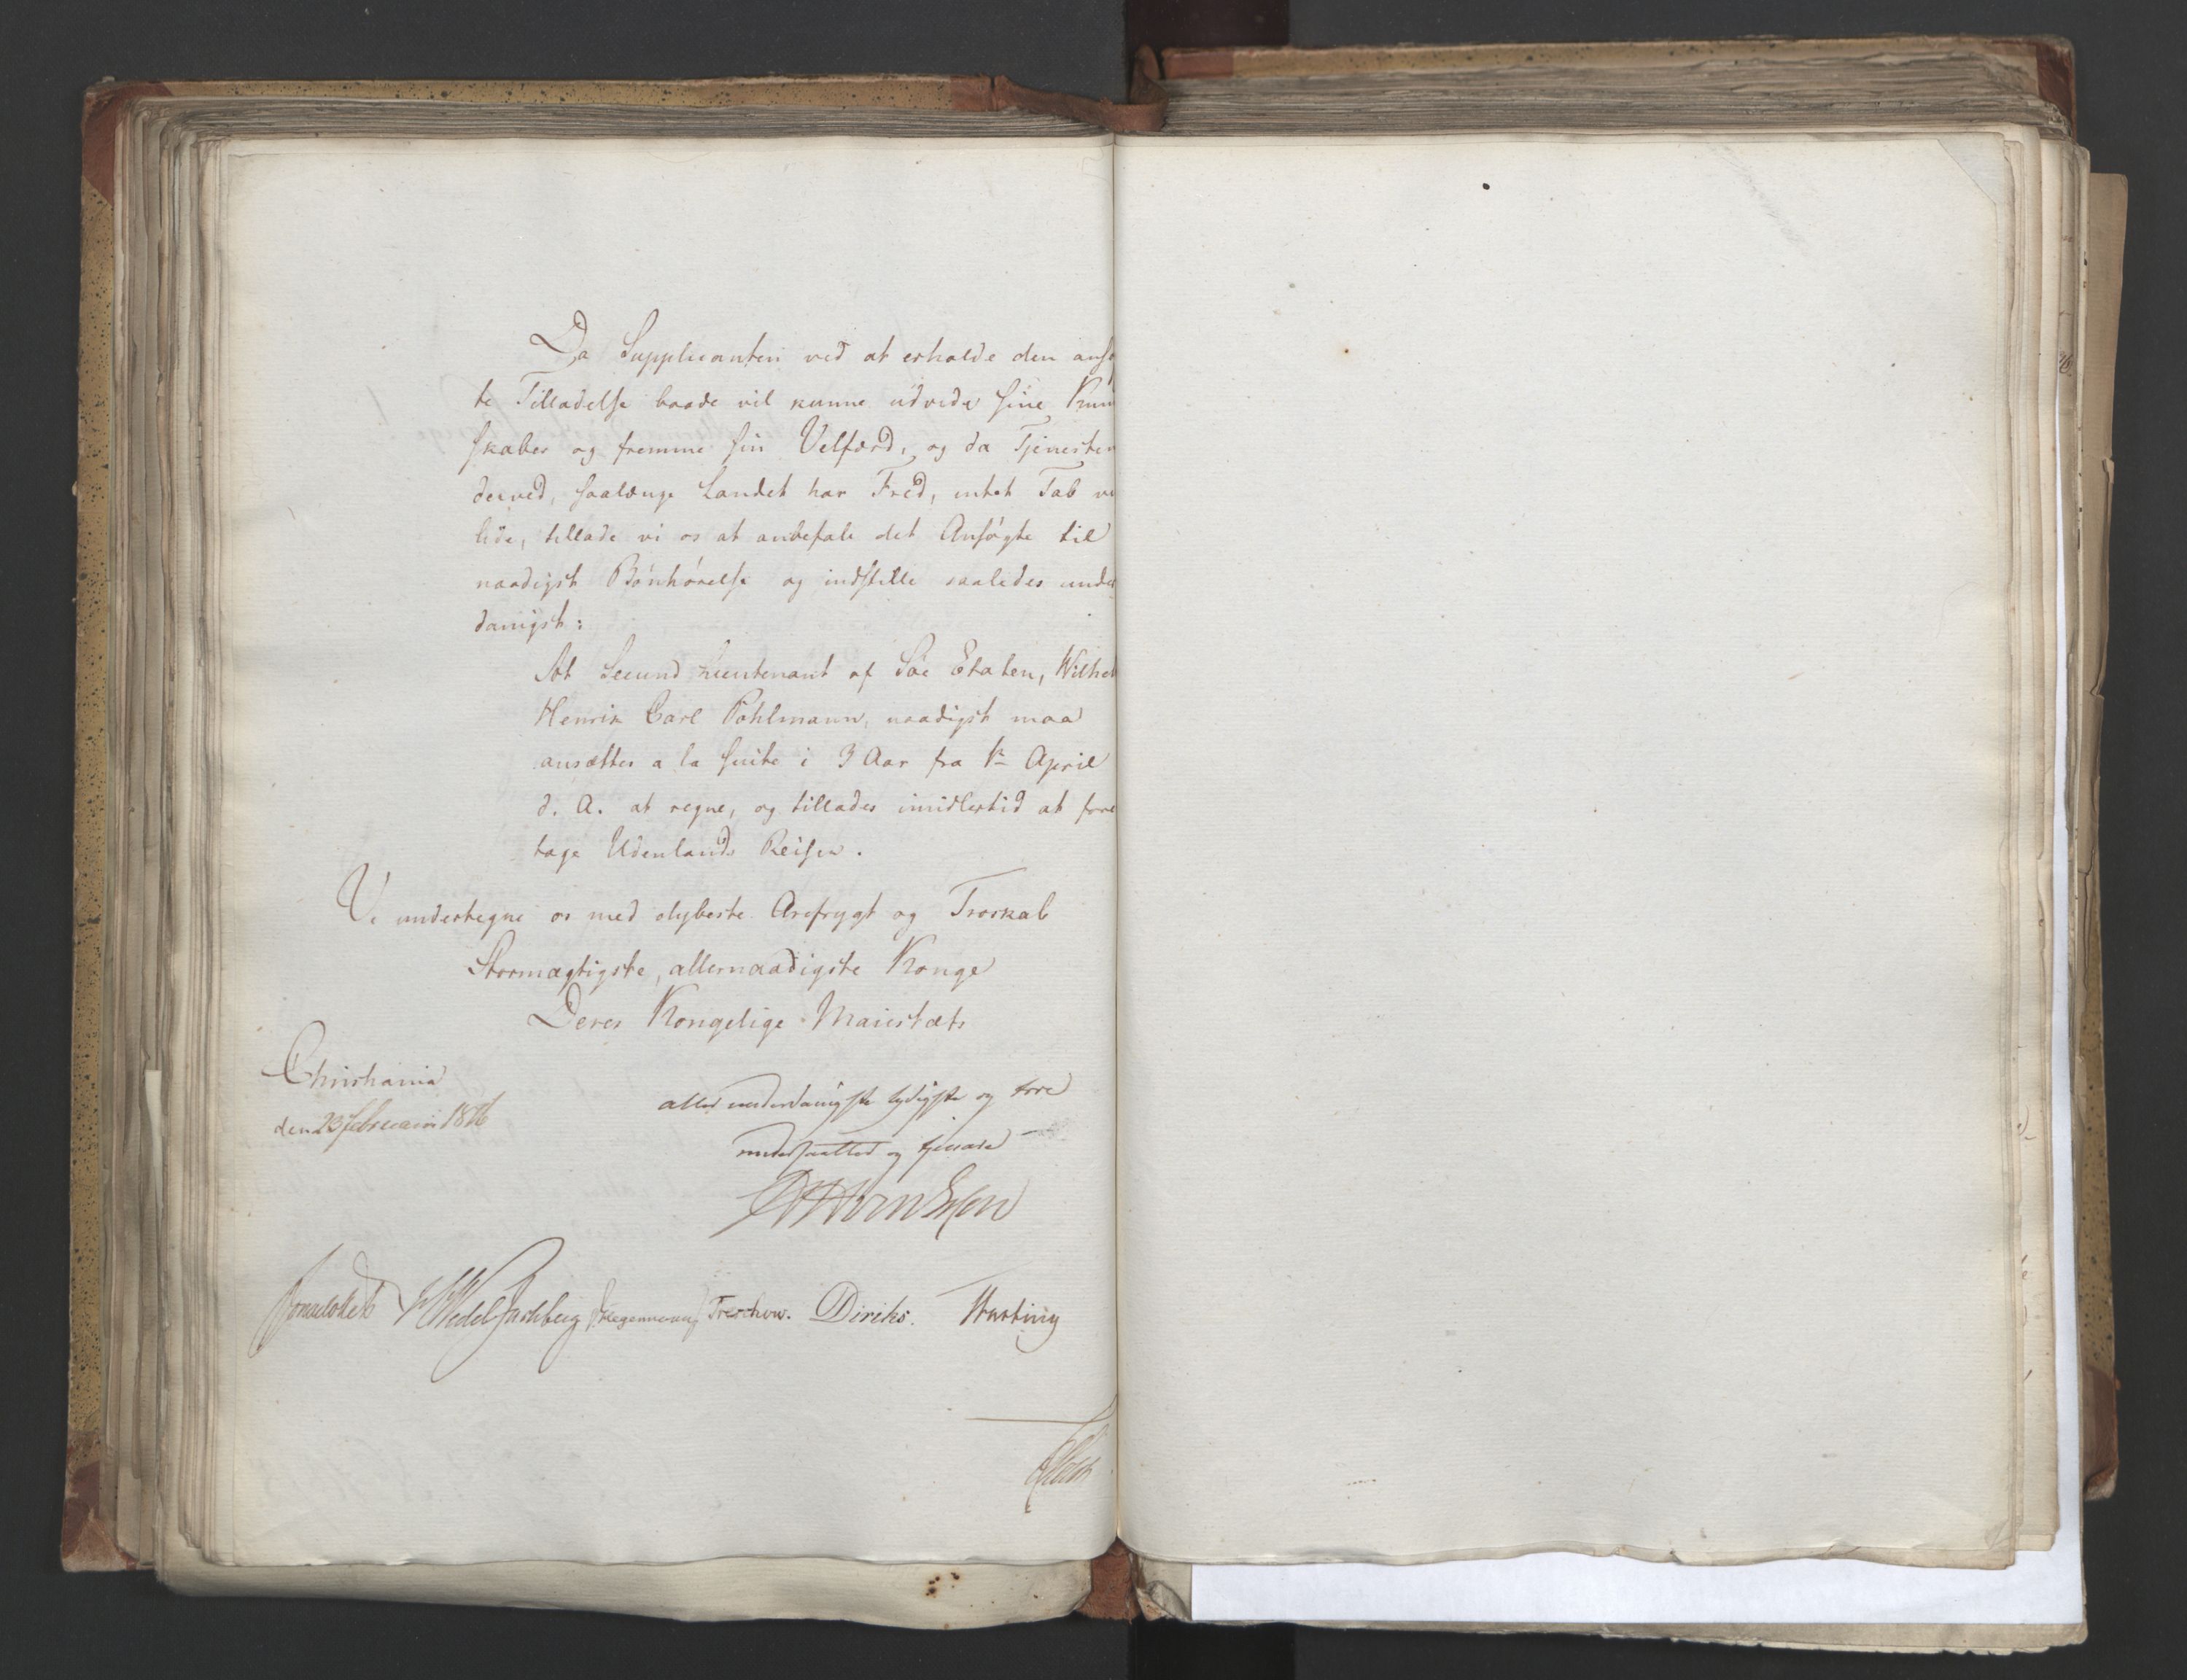 Da Supplicanten ved at erholde den ansø
te Tilladelse baade vil kunne udvide sine Kun
skaber og fremme sin Velfærd, og da Tjenesten
derved, saalænge Landet har Fred, intet Tab vi
lide, tillade vi os at anbefale det Ansøgte til
naadigst Bönhörelse og indstille saaledes under
danigst:
At Second Lieutenant af Söe Etaten, Wilhel
Henrik Carl Pöhlmann, naadigst maa
ansættes a la Suite i 3 Aar fra 1ste April
d. A. at regne, og tillades imidlertid at fore
tage Udenlands Reiser.
Vi undertegne os med dybeste Ærefrygt og Troskab
Stormægtigste, allernaadigste Konge
Deres Kongelige Maiestæts
Christiania
den 23 februarii 1816
allerunderdanigste lydigste og troe
undersaatter og tjenere
Wedel Jarlsberg Hegermann Treschow. Diriks. Motzfeldt